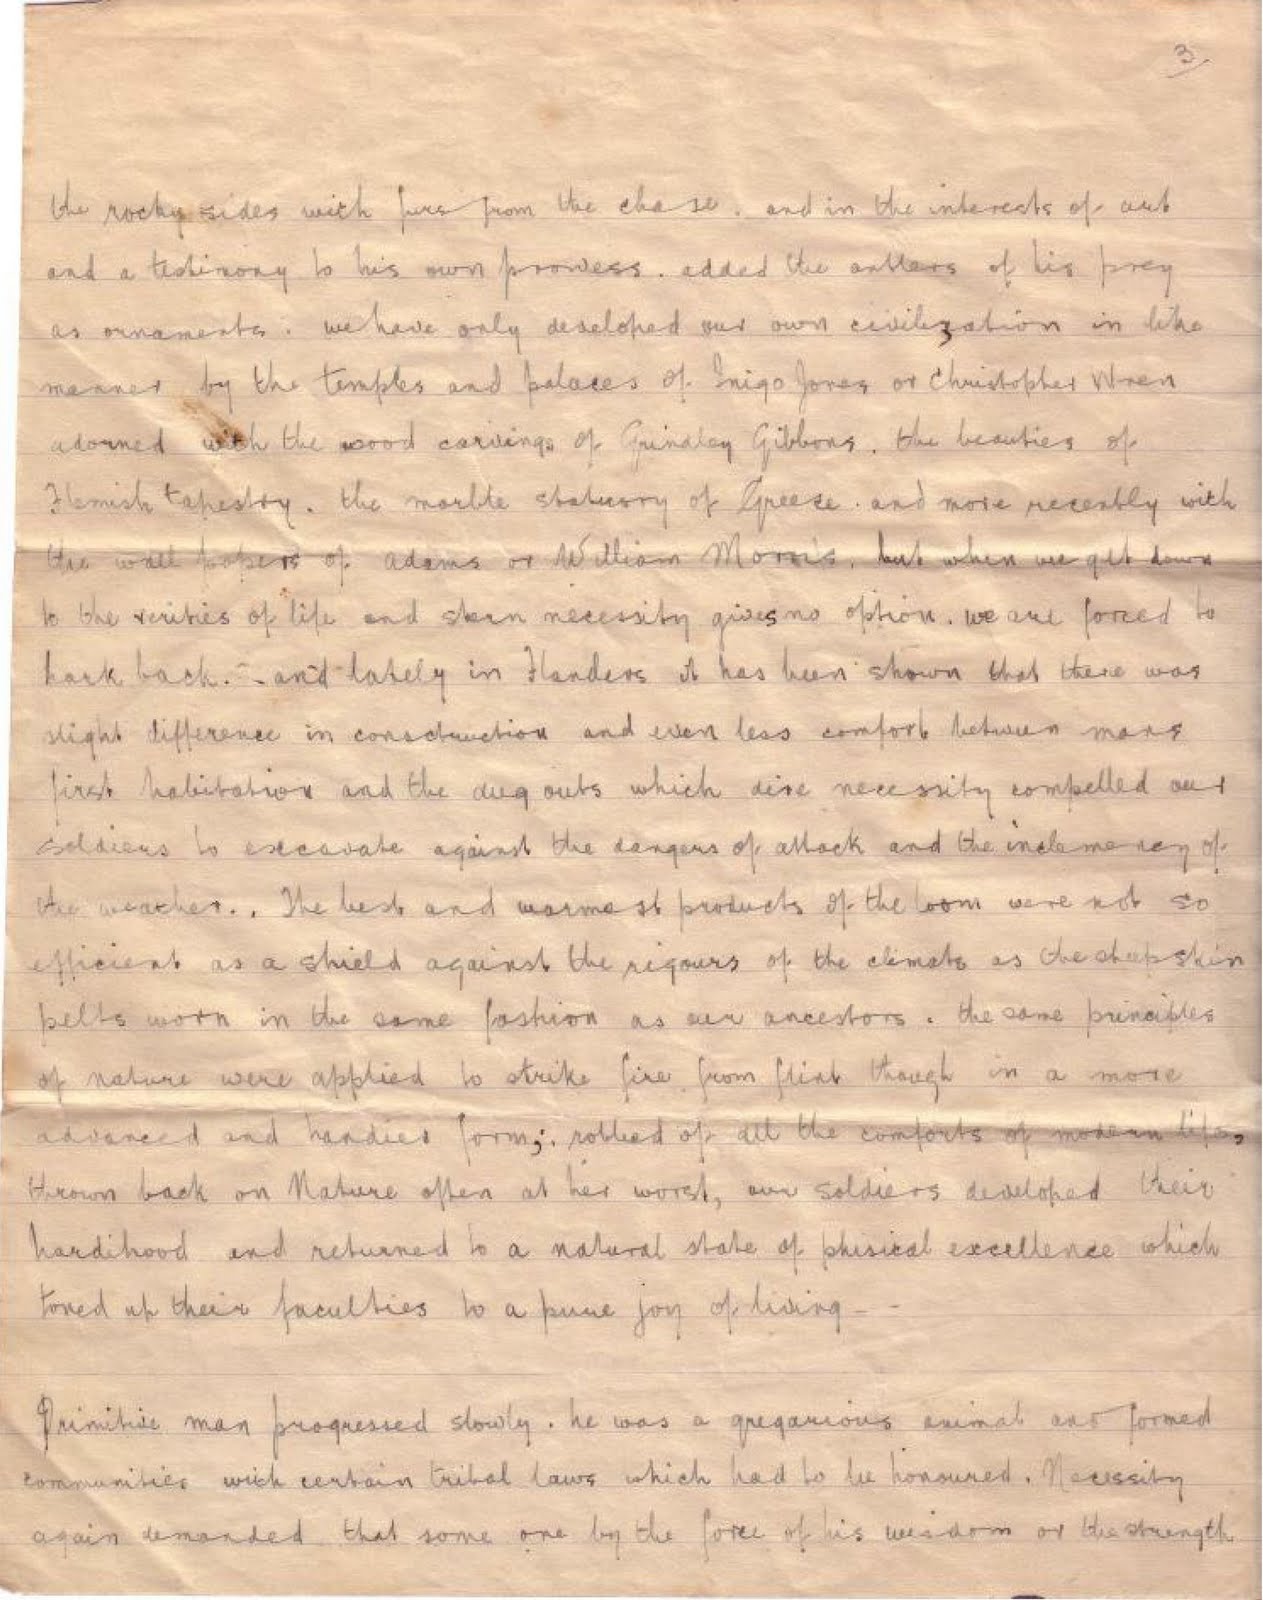 3
the rocky sides with furs from the chase. and in the interests of art
and a testimony to his own prowess. added the antlers of his prey
as ornaments. we have only developed our own civilization in like
manner by the temples and palaces of Inigo Jones or Christopher Wren
adorned with the wood carvings of Grindley Gibbons. the beauties of
Flemish tapestry. the marble statuary of Greece. and more recently with
the wall papers of Adams or William Morris. but when we get down
to the verities of life and stern necessity gives no option. we are forced to
hark back. - and lately in Flanders it has been shown that there was
slight difference in construction and even less comfort between mans
first habitation and the dug outs which dire necessity compelled our
soldiers to excavate against the dangers of attack and the inclemency of
the weather.. The best and warmest products of the loom were not so
efficient as a shield against the rigours of the climate as the sheepskin
pelts worn in the same fashion as our ancestors. the same principles
of nature were applied to strike fire from flint though in a more
advanced and handier form; robbed of all the comforts of modern life,
thrown back on Nature often at her worst, our soldiers developed their
hardihood and returned to a natural state of phisical excellence which
toned up their faculties to a pure joy of living - -
Primitive man progressed slowly. he was a gregarious animal and formed
communities with certain tribal laws which had to be honoured. Necessity
again demanded that some one by the force of his wisdom or the strength